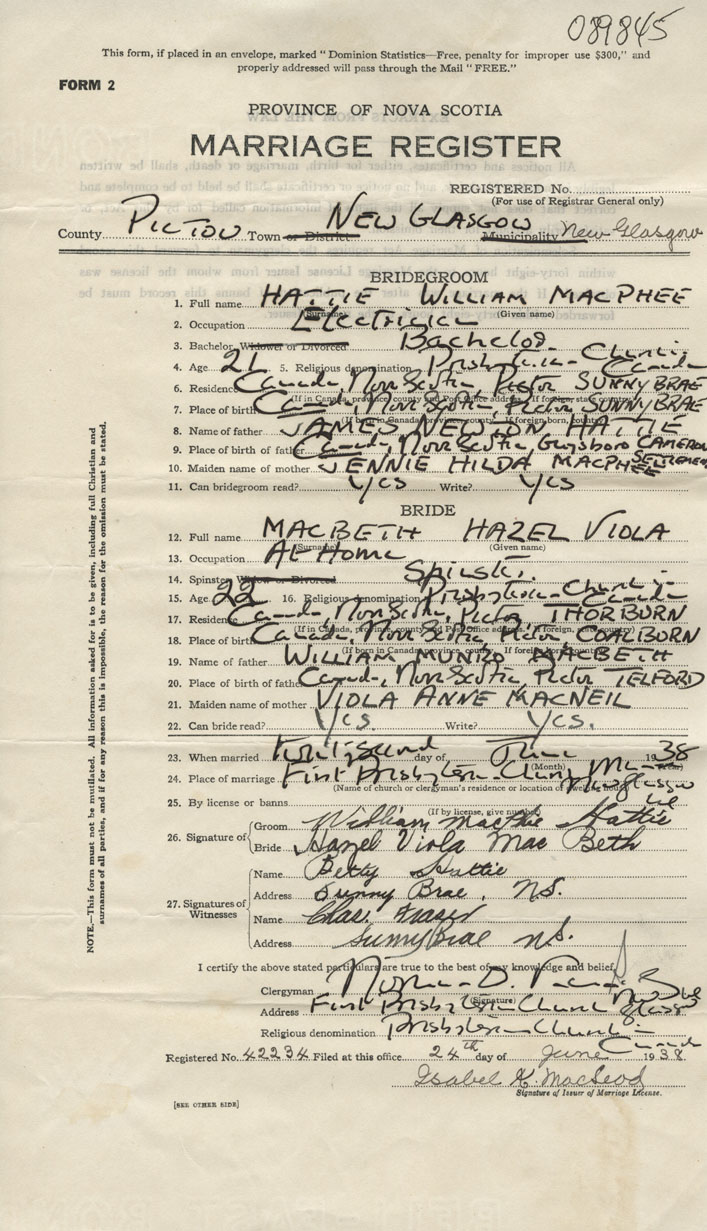 089845
This form, if placed in an envelope, marked " Dominion Statistics—Free, penalty for improper use $300," and
properly addressed will pass through the Mail " FREE."
FORM 2
PROVINCE OF NOVA SCOTIA
MARRIAGE REGISTER
REGISTERED No.
(For use of Registrar General only)
County PICTOU Town or District NEW GLASGOW Municipality New Glasgow
BRIDEGROOM
1. Full name HATTIE WILLIAM MACPHEE
(Surname) (Given name)
2. Occupation Electrician
3. Bachelor, Widower or Divorced Bachelor
4. Age 21 5. Religious denomination Presbyterian Church in Canada
6. Residence Canada, Nova Scotia, Pictou SUNNY BRAE
(If in Canada, province, county and Post Office address. If foreign, state country)
7. Place of birth Canada, Nova Scotia, Pictou, SUNNYBRAE
(If born in Canada, province, county. If foreign born, country)
8. Name of father JAMES NEWTON HATTIE
9. Place of birth of father Canada, Nova Scotia Guysboro CAMERON SETTLEMENT
10. Maiden name of mother JENNIE HILDA MACPHEE
11. Can bridegroom read? Yes Write? Yes
BRIDE
12. Full name MACBETH HAZEL VIOLA
(Surname) (Given name)
13. Occupation At Home
14. Spinster Widow or Divorced Spinster
15. Age 22 16. Religious denomination Presbyterian Church in Canada
17. Residence Canada, Nova Scotia, Pictou THORBURN
18. Place of birth Canada, Nova Scotia, Pictou COALBURN
19. Name of father WILLIAM MUNRO MACBETH
20. Place of birth of father Canada, Nova Scotia, Pictou TELFORD
21. Maiden name of mother VIOLA ANNE MACNEIL
22. Can bride read? Yes. Write? Yes.
23. When married Twenty second day of June 1938
(Month) (Year)
24. Place of marriage First Presbyterian Church New Glasgow
(Name of church or clergyman's residence or location of dwelling house)
25. By license or banns Lic
(If by license, give number)
26. Signature of
Groom William MacPhee Hattie
Bride Hazel Viola Mac Beth
27. Signatures of Witnesses
Name Betty Hattie
Address Sunny Brae, N.S.
Name Chas. Fraser
Address Sunny Brae N.S.
I certify the above stated particulars are true to the best of my knowledge and belief,
Clergyman Norman D.
(Signature)
Address First Presbyterian Church New Glasgow
Religious denomination Presbyterian Church in Canada
Registered No. 42234 Filed at this office 24th day of June 1938
Isabel K. MacLeod
Signature of Issuer of Marriage License.
[SEE OTHER SIDE]
NOTE.—This form must not be mutilated. All information asked for is to be given, including full Christian and
surnames of all parties, and if for any reason this is impossible, the reason for the omission must be stated.